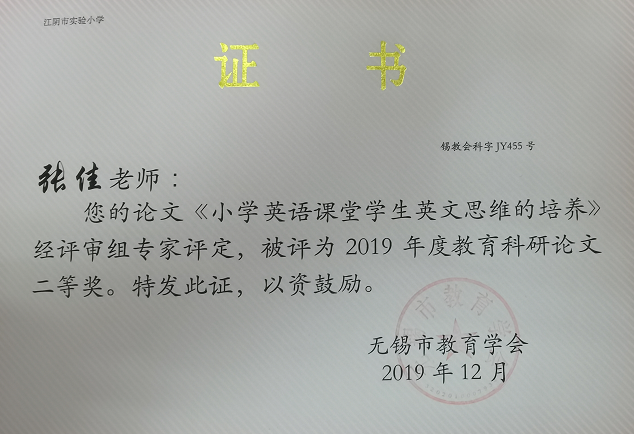 江阴市实验小学
证 书
锡教会科字JY455号
张佳老师：
您的论文《小学英语课堂学生英文思维的培养》
经评审组专家评定，被评为2019年度教育科研论文
二等奖。特发此证，以资鼓励。
市教育学
无锡市教育学会
2019年12月